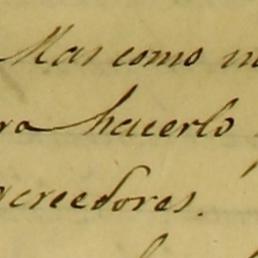 Mas como
hacerlo
acreedores.